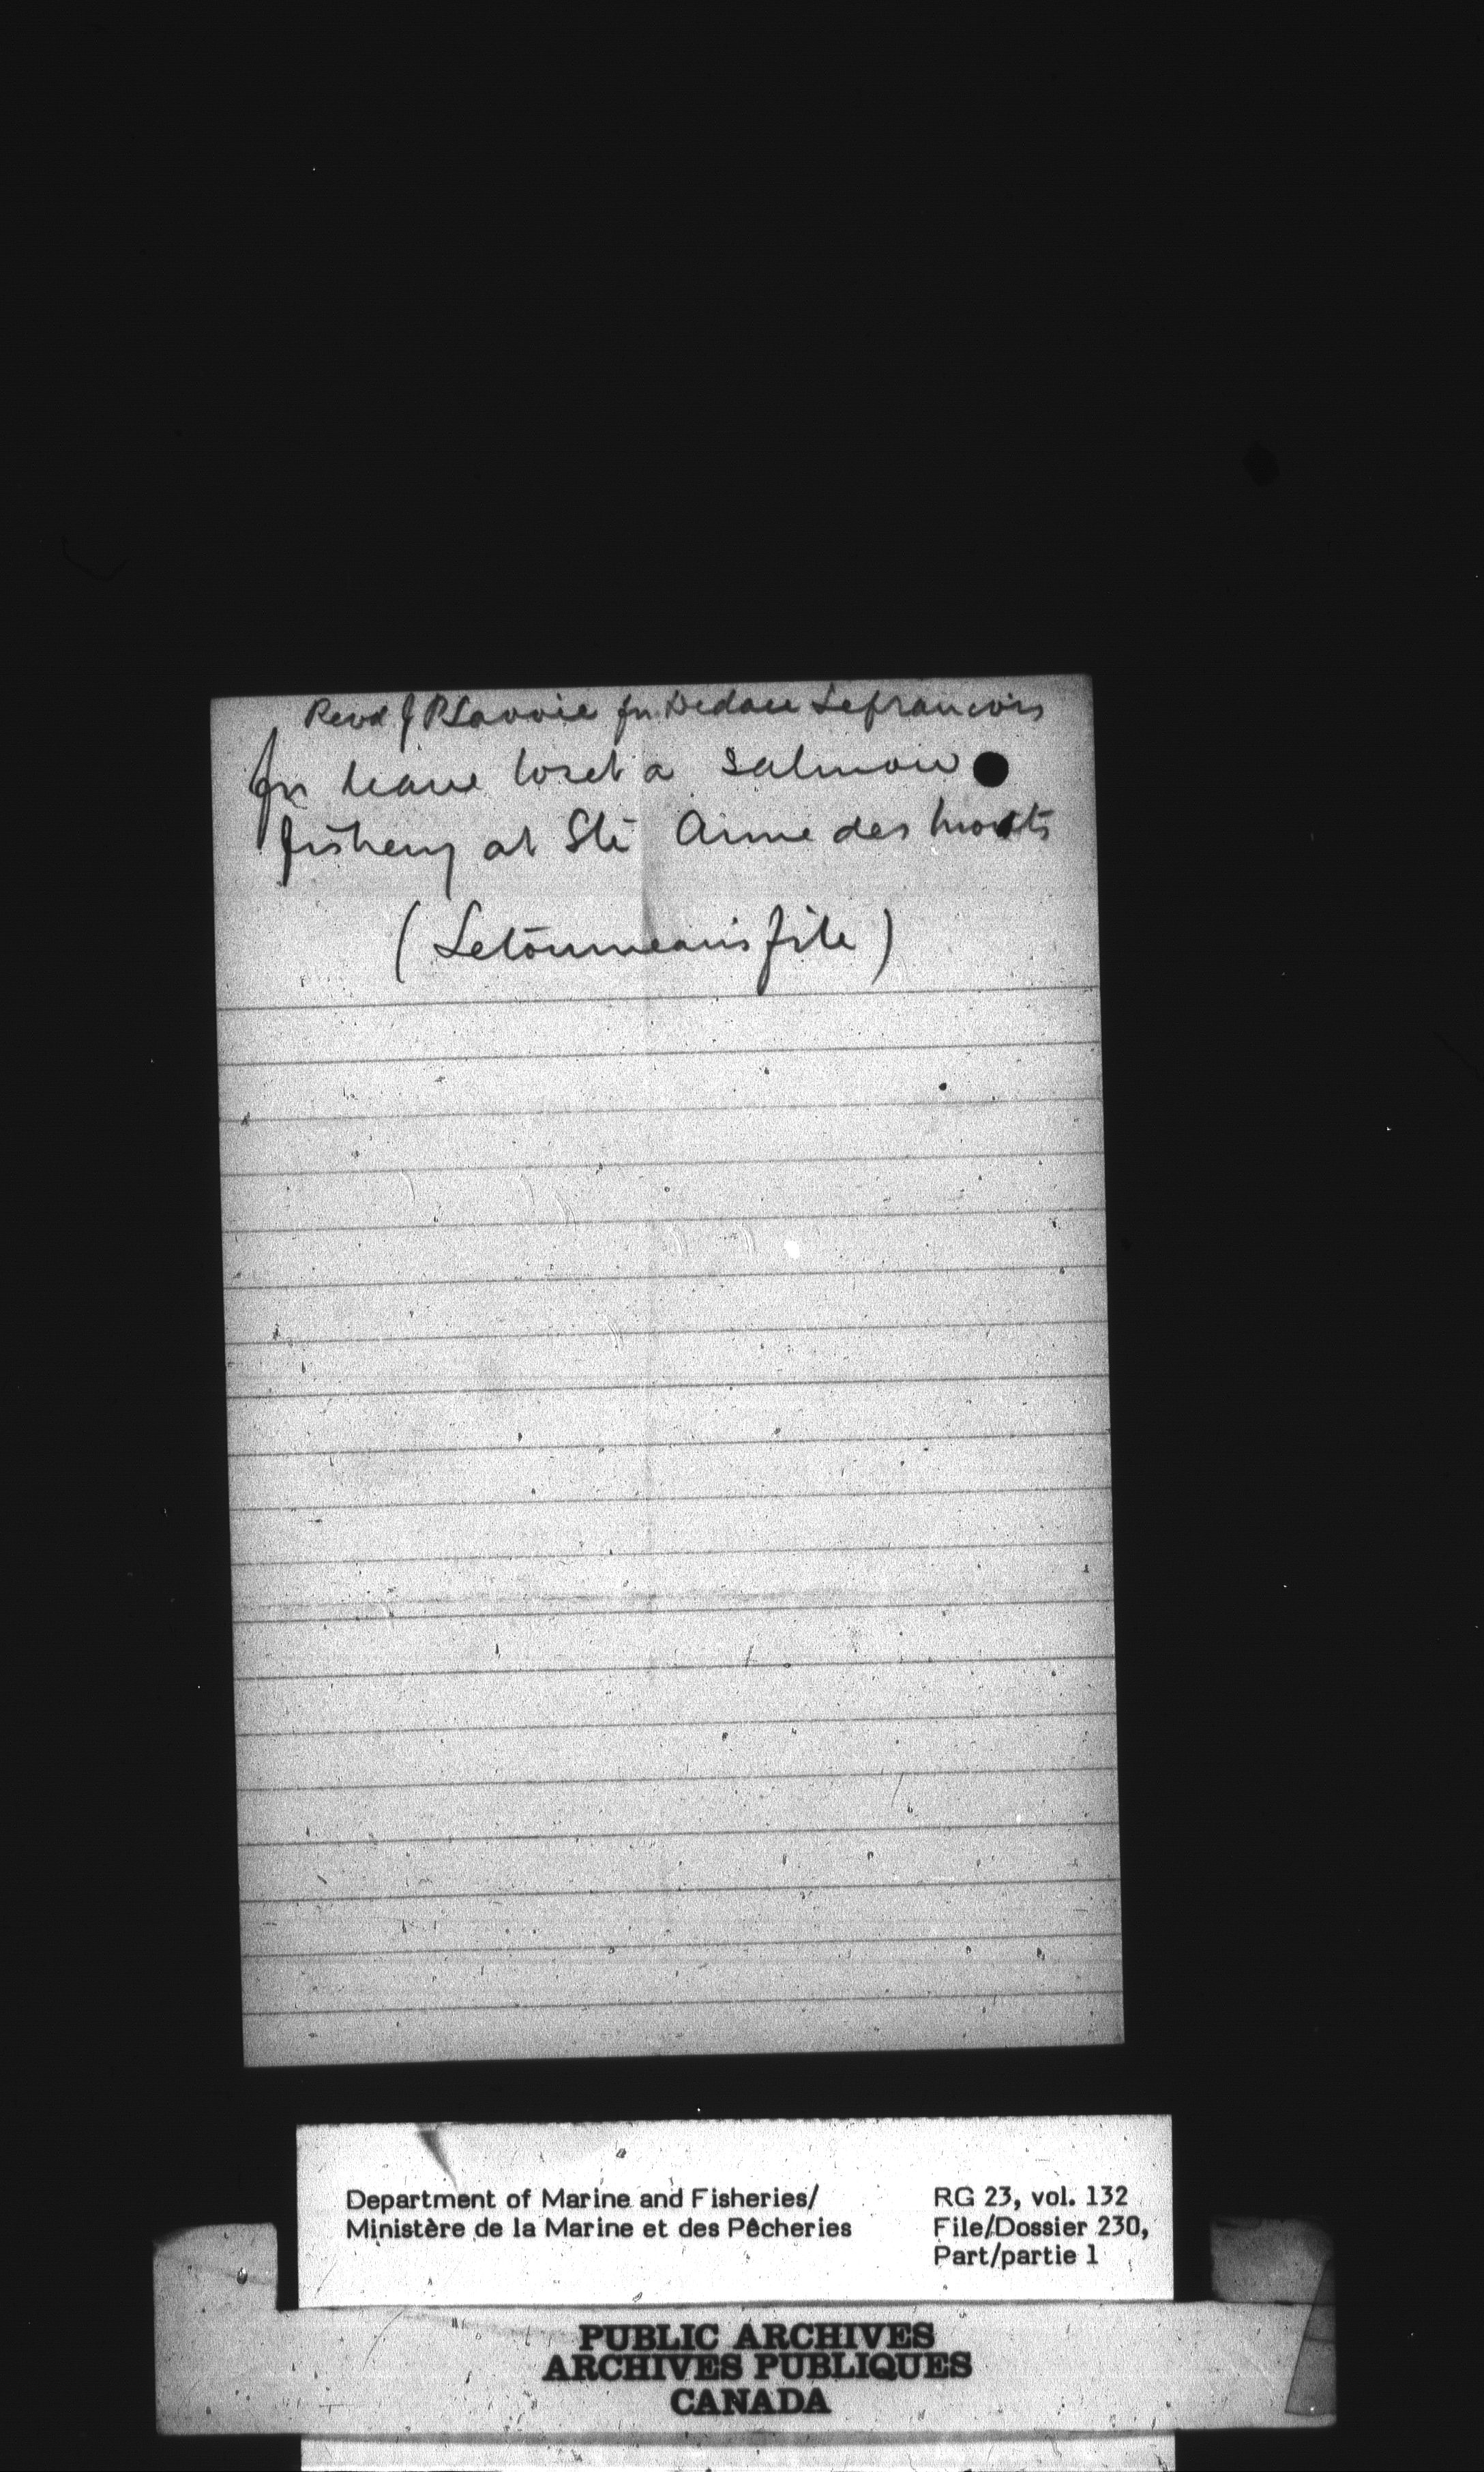 Revd J P Lavoie for Didace Lefrancois
for leave to set a salmon
fishery at Ste Anne des Monts
(Letourneau's file)
Department of Marine and Fisheries/
Ministère de la Marine et des Pêcheries
RG 23, vol. 132
File/Dossier 230,
Part/partie 1
PUBLIC ARCHIVES
ARCHIVES PUBLIQUES
CANADA